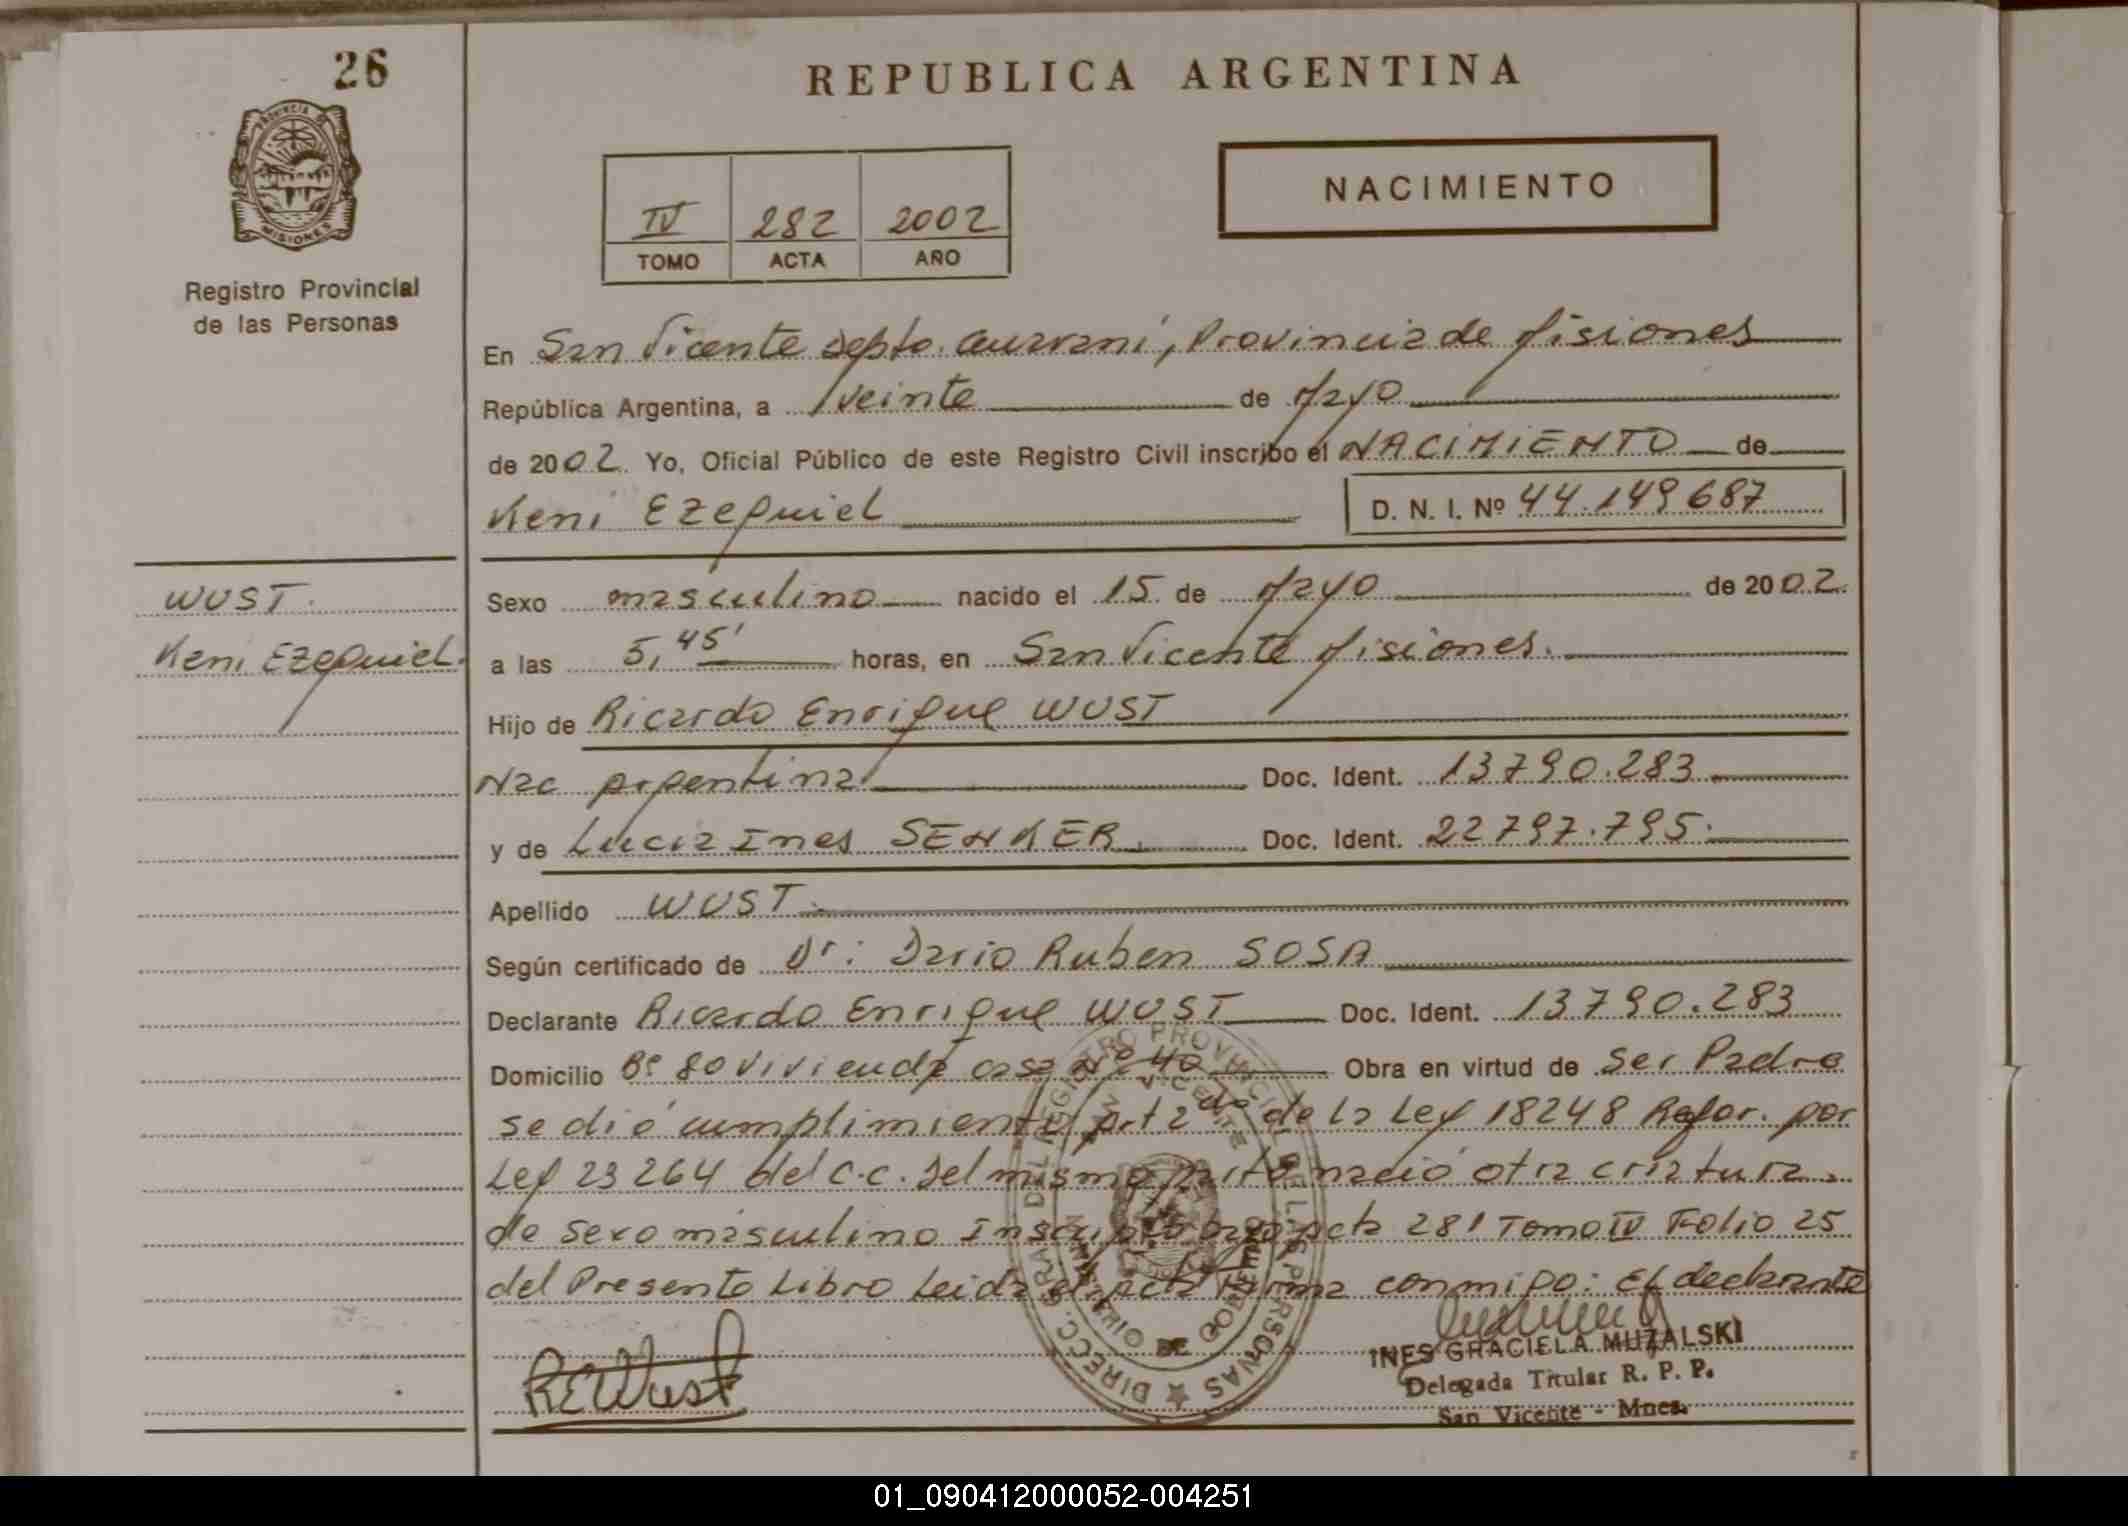 26
REPUBLICA ARGENTINA
PROVINCIA DE
MISIONES
Registro Provincial
de las Personas
NACIMIENTO
IV 282 2002
TOMO ACTA AÑO
En San Vicente Depto. Guaraní, Provincia de Misiones
República Argentina, a veinte de Mayo
de 2002. Yo, Oficial Público de este Registro Civil inscribo el NACIMIENTO de
Keni Ezequiel
D. N. I. Nº 44.149687
WUST.
Keni Ezequiel.
Sexo masculino nacido el 15 de Mayo de 2002.
a las 5,45' horas, en San Vicente Misiones.
Hijo de Ricardo Enrique WUST
Nac Argentina Doc. Ident. 13790.283
y de Lucia Ines SENKER. Doc. Ident. 22797.795.
Apellido WUST.
Según certificado de Dr: Dario Ruben SOSA
Declarante Ricardo Enrique WUST Doc. Ident. 13790.283
Domicilio Bº 80 Vivienda casa Nº 40 Obra en virtud de Ser Padre
se dió cumplimiento Art 2do de la Ley 18248 Refor. por
Ley 23264 del C.C. Del mismo parto nació otra criatura
de sexo masculino Inscripto bajo Acta 281 Tomo IV Folio 25
del Presente Libro Leida el Acta Firma conmigo: El declarante
REWust
INES GRACIELA MUZALSKI
Delegada Titular R. P. P.
San Vicente - Mnes.
DIRECC. GRAL DEL REGISTRO PROVINCIAL DE LAS PERSONAS
SAN VICENTE
MINISTERIO DE GOBIERNO
01_090412000052-004251